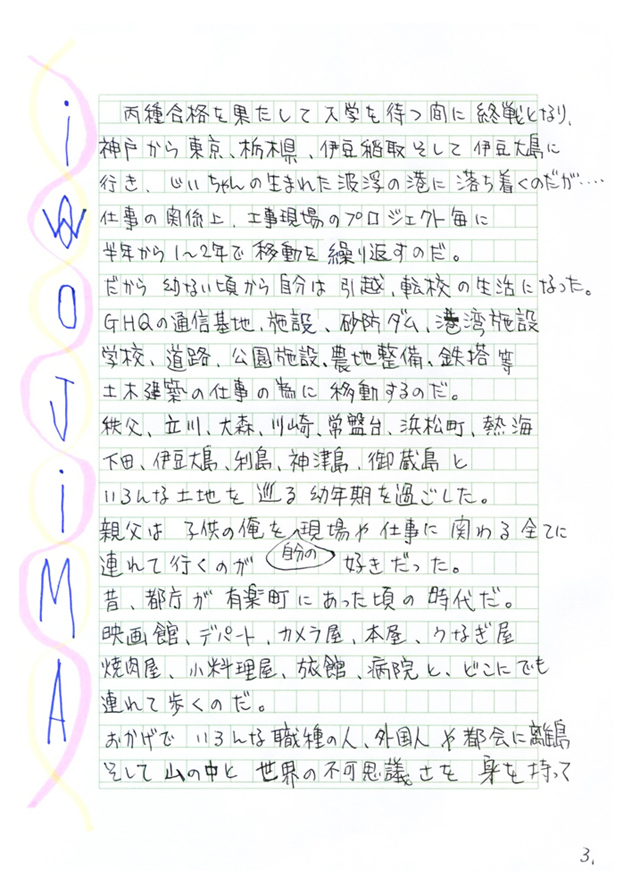 iWOJiMA
丙種合格を果たして入学を待つ間に終戦となり、
神戸から東京、栃木県、伊豆稲取そして伊豆大島に
行き、じいちゃんの生まれた波浮の港に落ち着くのだが‥‥
仕事の関係上、工事現場のプロジェクト毎に
半年から1〜2年で移動を繰り返すのだ。
だから幼ない頃から自分は引越、転校の生活になった。
GHQの通信基地、施設、砂防ダム、港湾施設
学校、道路、公園施設、農地整備、鉄塔等
土木建築の仕事の為に移動するのだ。
秩父、立川、大森、川崎、常盤台、浜松町、熱海
下田、伊豆大島、利島、神津島、御蔵島と
いろんな土地を巡る幼年期を過ごした。
親父は子供の俺を自分の現場や仕事に関わる全てに
連れて行くのが好きだった。
昔、都庁が有楽町にあった頃の時代だ。
映画館、デパート、カメラ屋、本屋、うなぎ屋
焼肉屋、小料理屋、旅館、病院と、どこにでも
連れて歩くのだ。
おかげでいろんな職種の人、外国人や都会に離島
そして山の中と世界の不可思議さを身を持って
3.